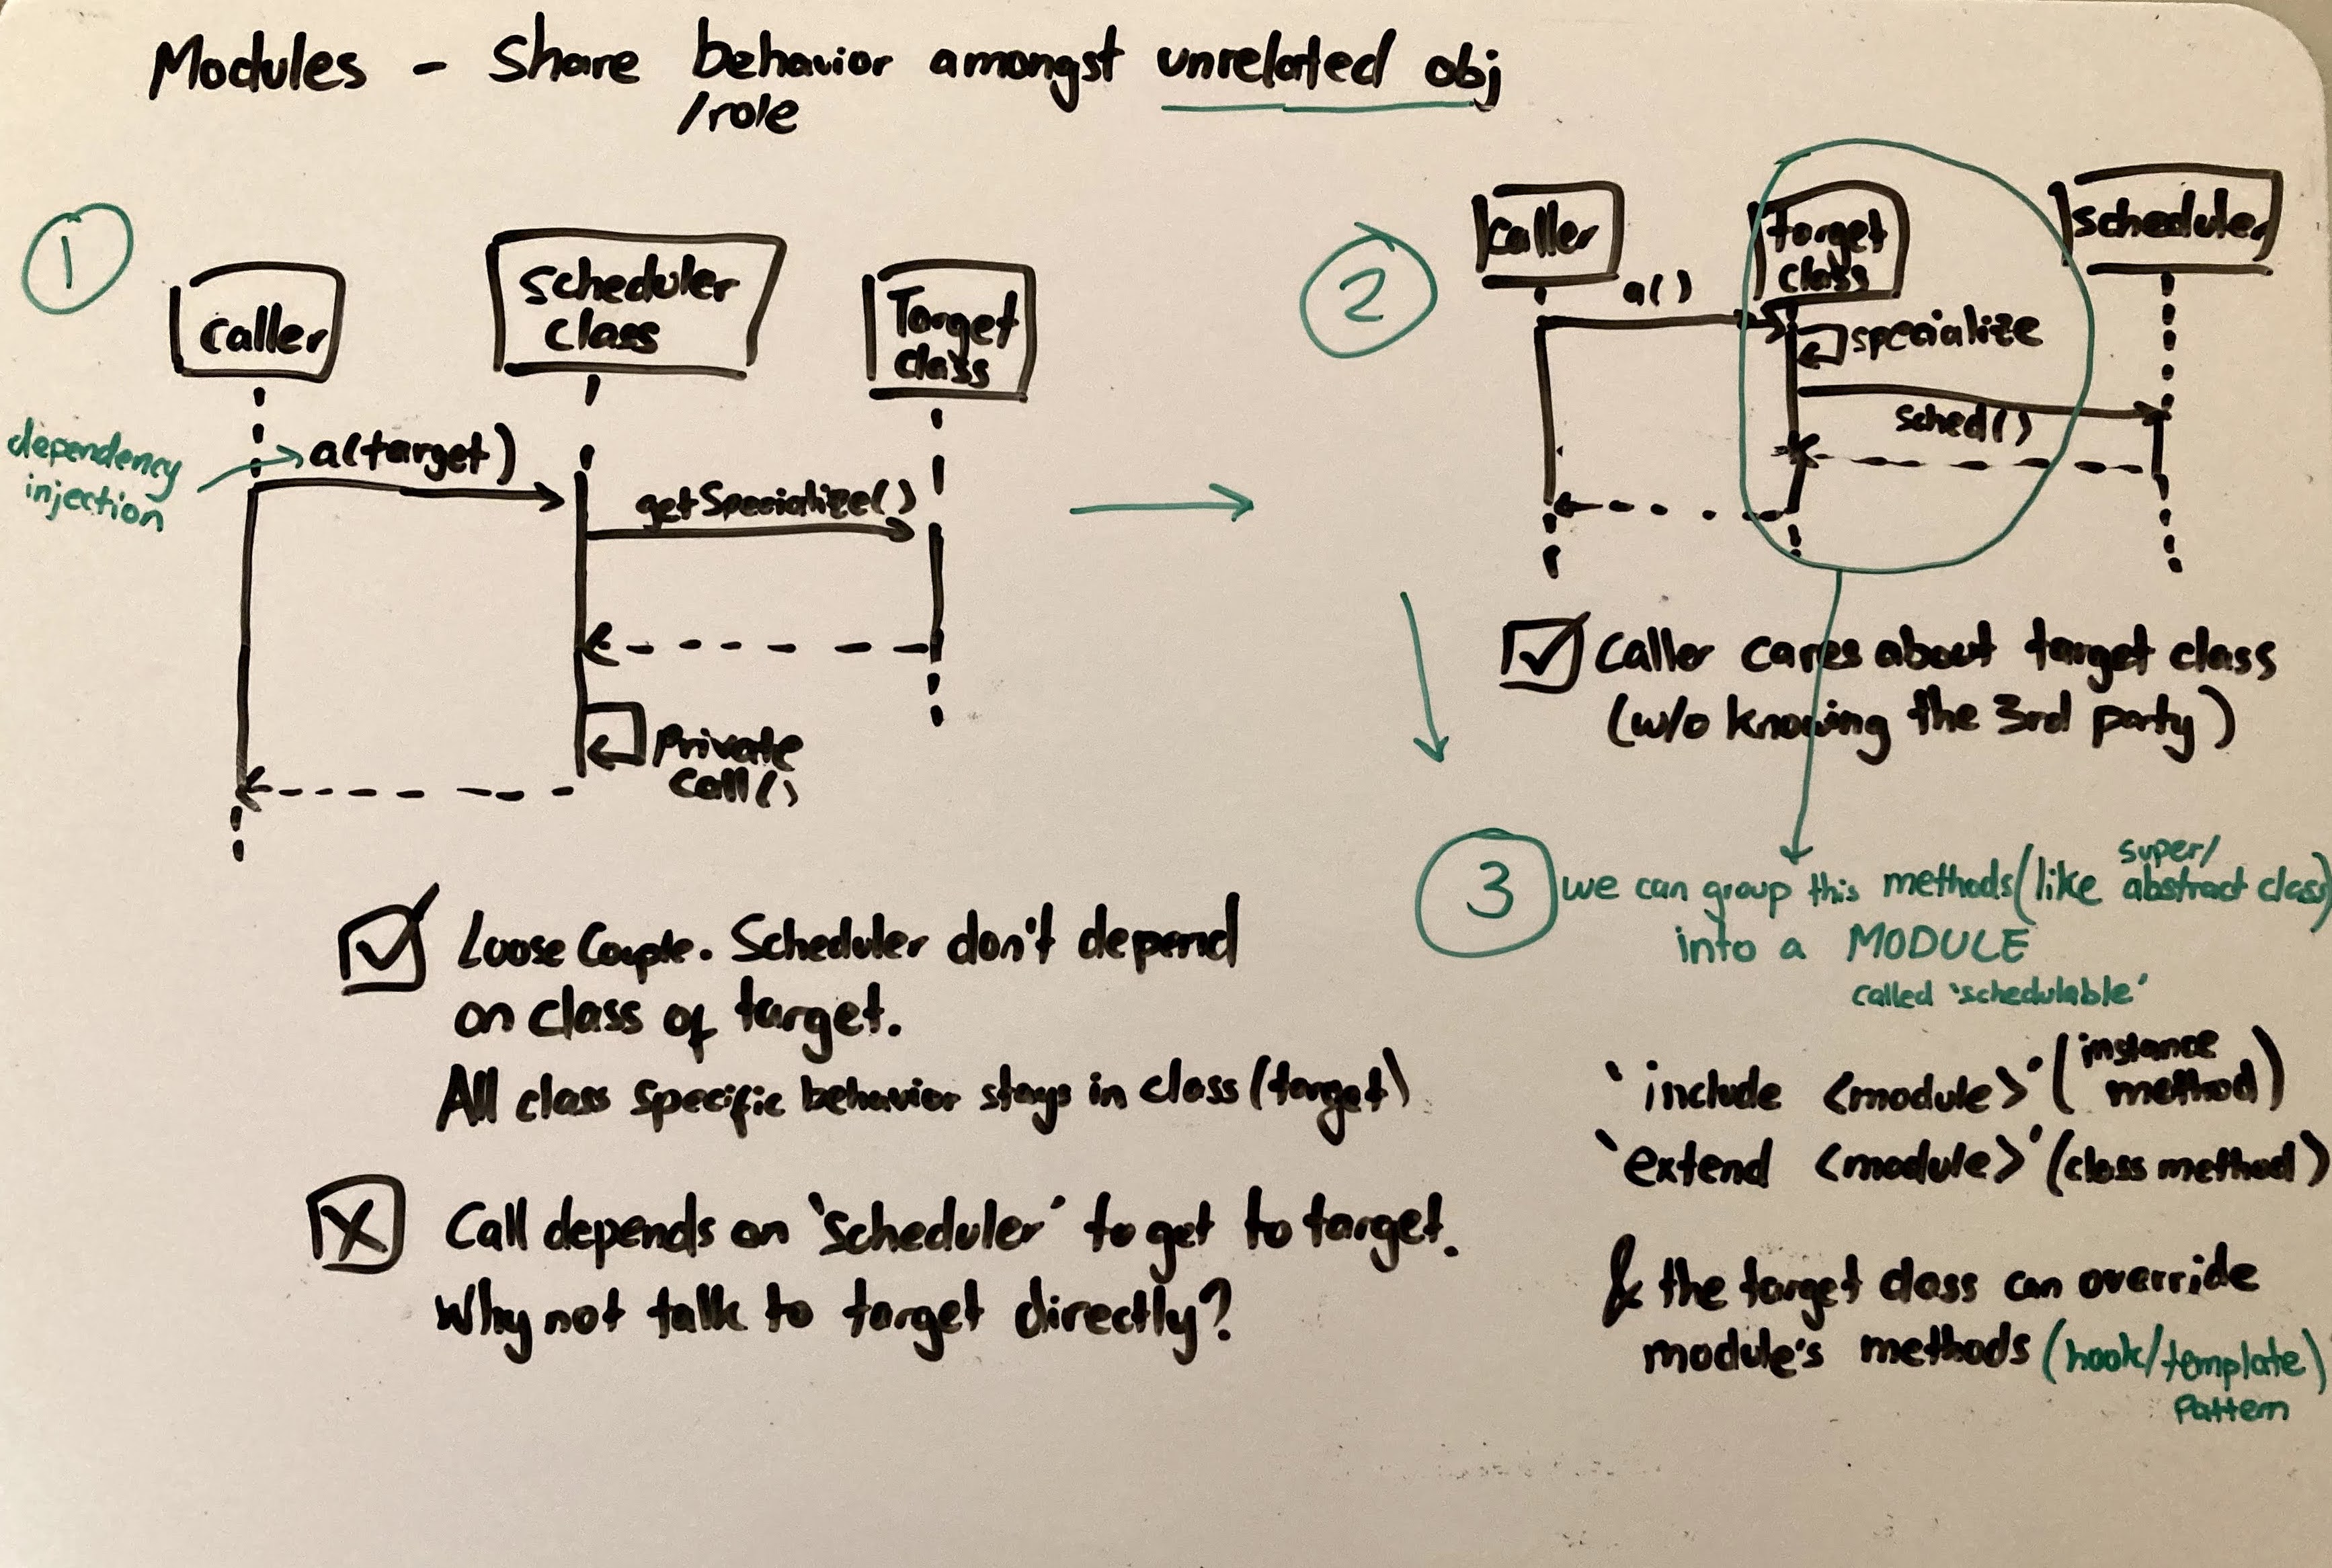 Modules - Share behavior amongst unrelated obj
/role
1
caller
scheduler
class
Target
class
dependency
injection
a(target)
getSpecialize()
Private
call()
Loose Couple. Scheduler don't depend
on class of target.
All class specific behavior stays in class (target)
X
Call depends on 'scheduler' to get to target.
Why not talk to target directly?
2
caller
Target
class
scheduler
a()
specialize
sched()
Caller cares about target class
(w/o knowing the 3rd party)
3
super/
we can group this methods (like abstract class)
into a MODULE
called 'schedulable'
'include <module>' (instance
method)
'extend <module>' (class method)
& the target class can override
module's methods (hook/template)
Pattern